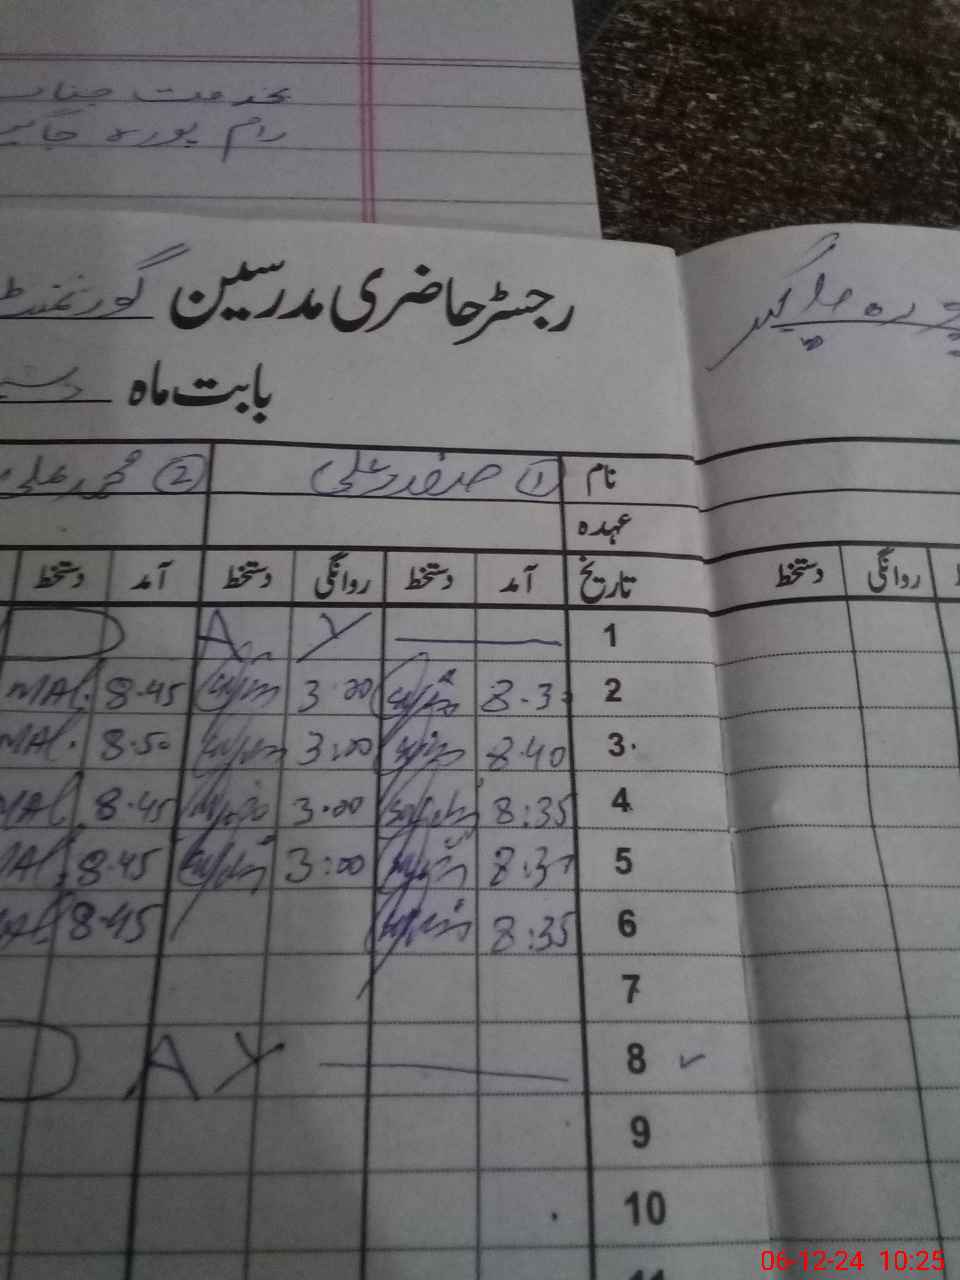 بخدمت جناب
رام پورہ جاگیر
رجسٹر حاضری مدرسین گورنمنٹ
بابت ماہ
نام ① صفدر علی ② محمد علی
عہدہ
تاریخ آمد دستخط روانگی دستخط آمد دستخط
روانگی دستخط
1 D A Y
2 8.3 3.00 8.45 MAL.
3 8.40 3:00 8.50 MAL.
4 8:35 3.00 8.45 MAL
5 8:3 3:00 8.45 MAL.
6 8:35 8.45 MAL
7
8 D A Y
9
10
11
06-12-24 10:25